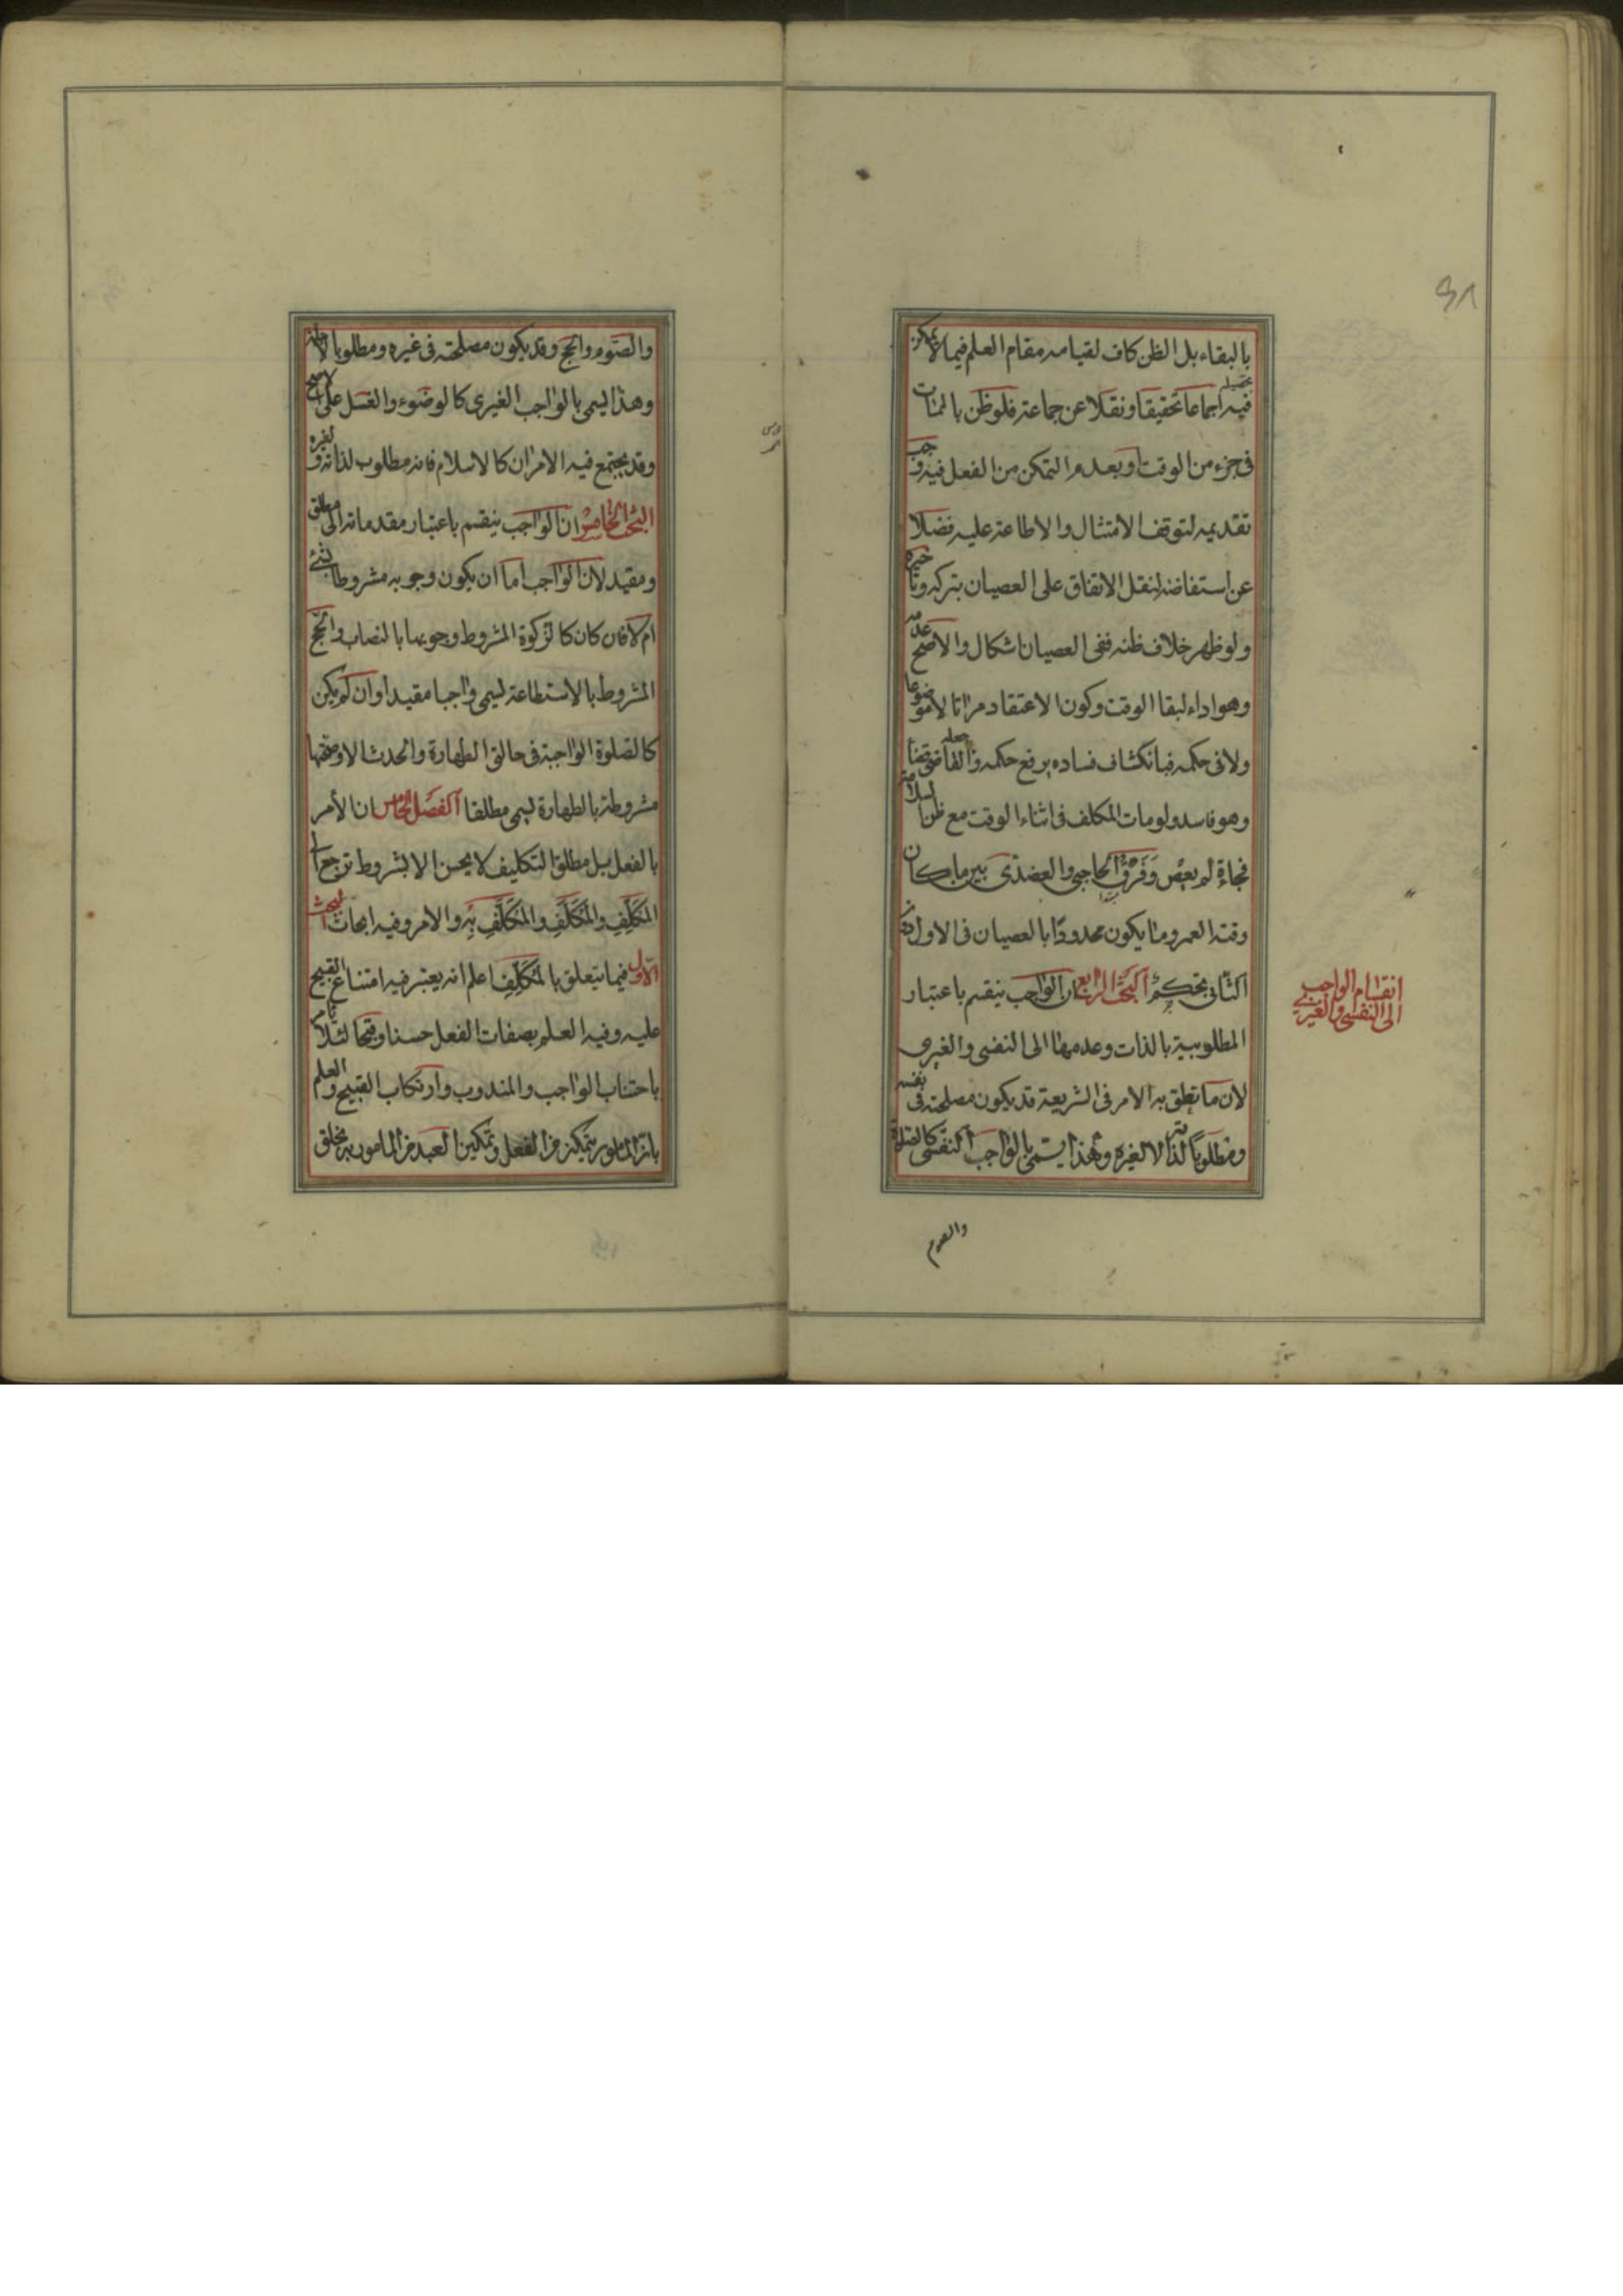 بالبقاء بل الظن كاف لقيامه مقام العلم فيما لا يمكن
تحصيله
فيه اجماعا تحقيقا ونقلا عن جماعة فلو ظن بالممات
فى جزء من الوقت او بعدم التمكن من الفعل فيه وجب
تقديمه لتوقف الامتثال والاطاعة عليه فضلا
عن استفاضة لنقل الاتفاق على العصيان بتركه وتأخيره
ولو ظهر خلاف ظنه ففى العصيان اشكال والاصح عدمه
وهو اداء لبقاء الوقت وكون الاعتقاد مراتا لا موضوعا
ولا فى حكمه فبانكشاف فساده يرفع حكمه وجعله القاضى قضاء
وهو فاسد ولو مات المكلف فى اثناء الوقت مع ظن السلامة
فجاءة لم يعص وفرق الحاجبى والعضدى بين ما كان
وقته العمر وما يكون محدودا بالعصيان فى الاول دون
الثانى تحكم البحث الرابع ان الواجب ينقسم باعتبار
المطلوبية بالذات وعدمها الى النفسى والغيرى
لان ما تعلق به الامر فى الشريعة قد يكون مصلحته فى نفسه
ومطلوبا لذاته لا لغيره وهذا يسمى بالواجب النفسى كالصلوة
والصوم
انقسام الواجب
الى النفسى والغيرى
والصوم والحج وقد يكون مصلحته فى غيره ومطلوبا لاجله
وهذا يسمى بالواجب الغيرى كالوضوء والغسل على الاصح
وقد يجتمع فيه الامران كالاسلام فانه مطلوب لذاته ولغيره
البحث الخامس ان الواجب ينقسم باعتبار مقدماته الى مطلق
ومقيد لان الواجب اما ان يكون وجوبه مشروطا بشئ
ام لا فان كان كالزكوة المشروط وجوبها بالنصاب والحج
المشروط بالاستطاعة يسمى واجبا مقيدا وان لم يكن
كالصلوة الواجبة فى حالتى الطهارة والحدث الا وصحتها
مشروطة بالطهارة يسمى مطلقا الفصل الخامس ان الأمر
بالفعل بل مطلق التكليف لا يحسن الا بشروط ترجع الى
المكلِّف والمكلَّف والمكلَّف به والامر وفيه ابحاث البحث
الاول فيما يتعلق بالمكلِّف اعلم انه يعتبر فيه امتناع القبيح
عليه وفيه العلم بصفات الفعل حسنا وقبحا لئلا يأمر
باجتناب الواجب والمندوب وارتكاب القبيح والعلم
بان المامور يتمكن من الفعل وتمكين العبد من المامور به بخلق